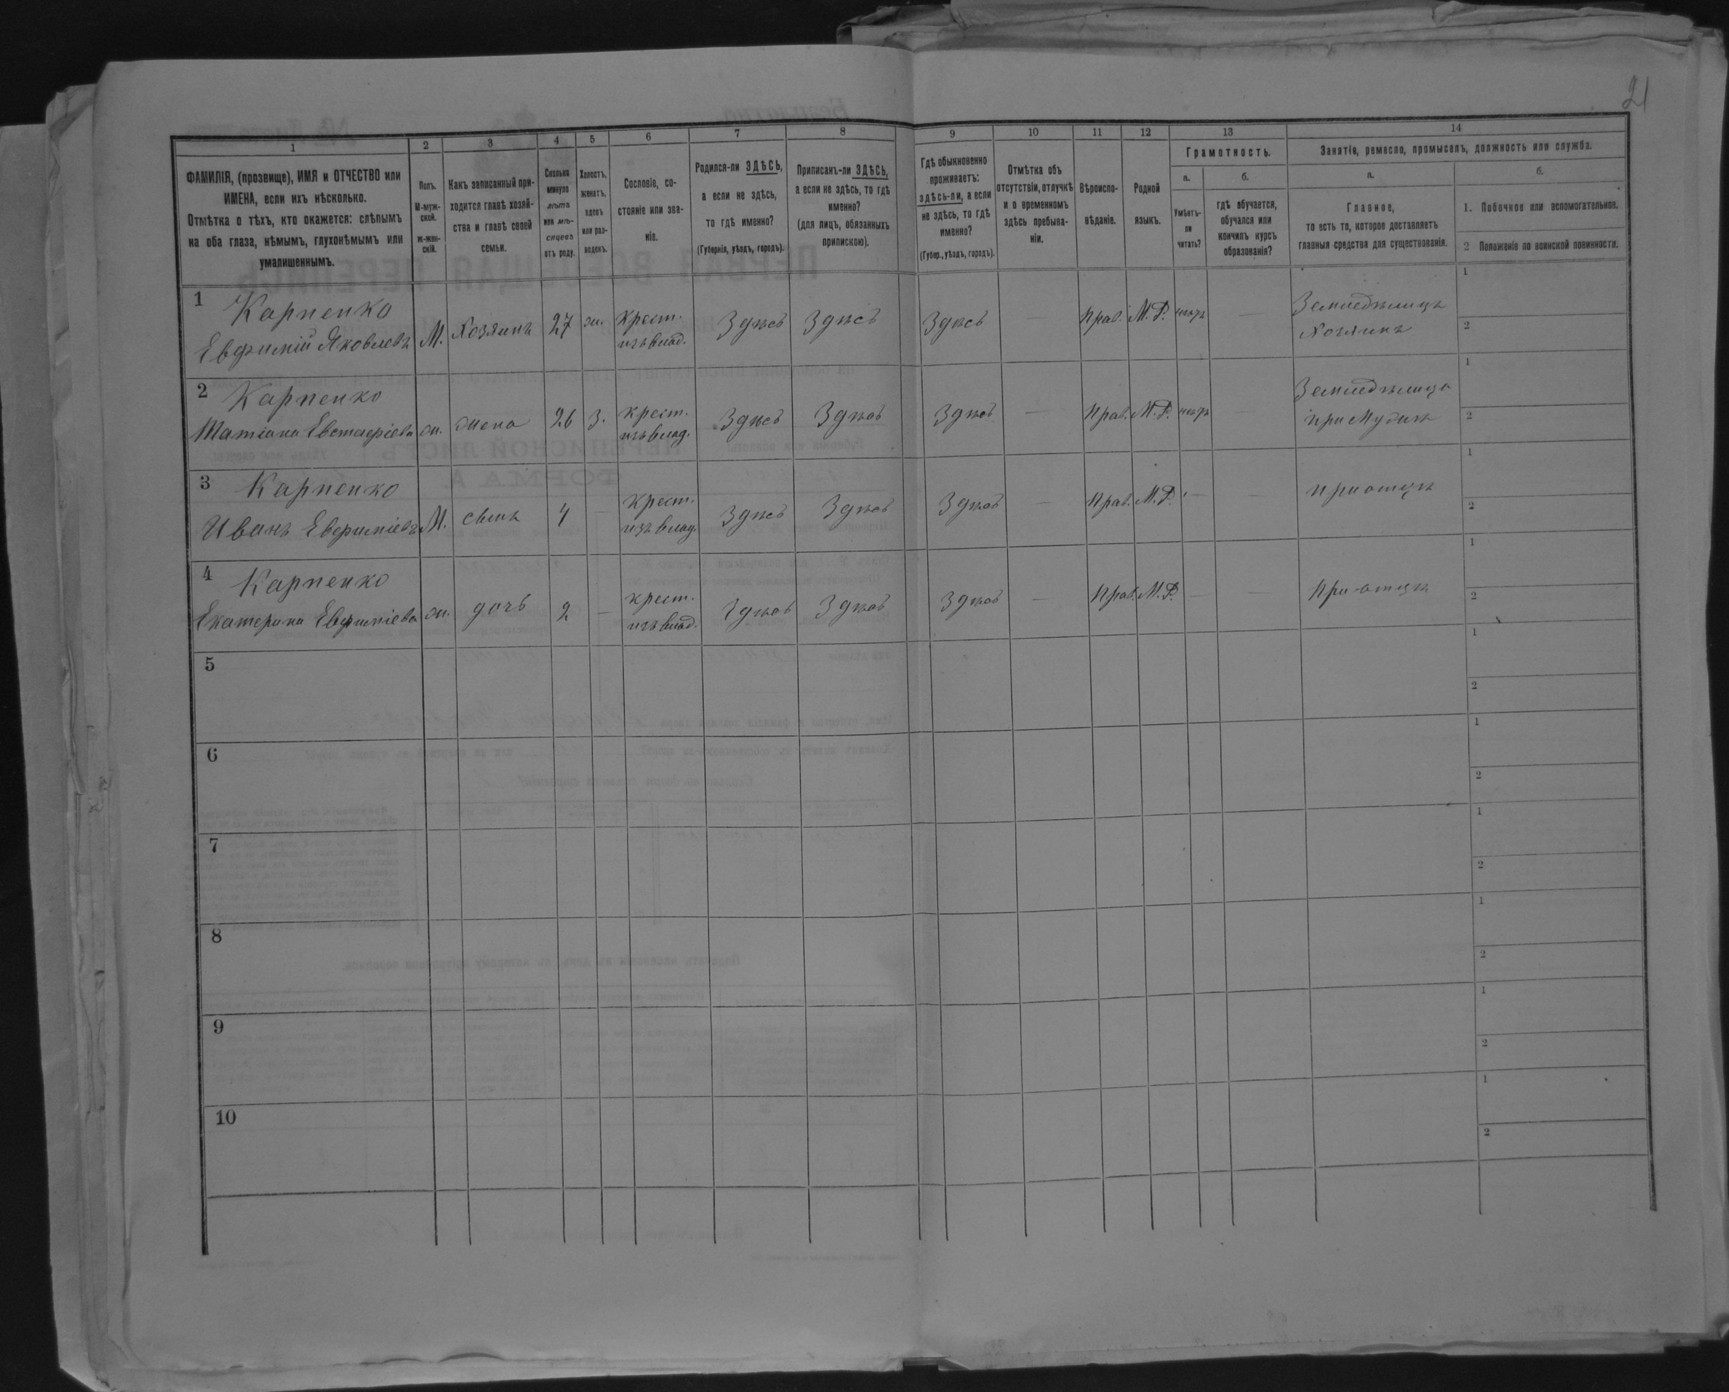 21
1
2
3
4
5
6
7
8
9
10
11
12
13
14
ФАМИЛІЯ, (прозвище), ИМЯ и ОТЧЕСТВО или
ИМЕНА, если ихъ нѣсколько.
Отмѣтка о тѣхъ, кто окажется: слѣпымъ
на оба глаза, нѣмымъ, глухонѣмымъ или
умалишеннымъ.
Полъ.
М-муж-
ской.
ж-жен-
скій.
Какъ записанный при-
ходится главѣ хозяй-
ства и главѣ своей
семьи.
Сколько
минуло
лѣтъ
или мѣ-
сяцевъ
отъ роду.
Холостъ,
женатъ,
вдовъ
или раз-
веденъ.
Сословіе, со-
стояніе или зва-
ніе.
Родился-ли ЗДѢСЬ,
а если не здѣсь,
то гдѣ именно?
(Губернія, уѣздъ, городъ).
Приписанъ-ли ЗДѢСЬ,
а если не здѣсь, то гдѣ
именно?
(для лицъ, обязанныхъ
припискою).
Гдѣ обыкновенно
проживаетъ:
здѣсь-ли, а если
не здѣсь, то гдѣ
именно?
(Губер., уѣздъ, городъ).
Отмѣтка объ
отсутствіи, отлучкѣ
и о временномъ
здѣсь пребыва-
ніи.
Вѣроиспо-
вѣданіе.
Родной
языкъ.
Грамотность.
а.
Умѣетъ-
ли
читать?
б.
гдѣ обучается,
обучался или
кончилъ курсъ
образованія?
Занятія, ремесло, промыселъ, должность или служба.
а.
Главное,
то есть то, которое доставляетъ
главныя средства для существованія.
б.
1. Побочное или вспомогательное.
2 Положеніе по воинской повинности.
1 Карпенко
Евфимій Яковлевъ М. Хозяинъ 27 ж. крест. изъ влад. Здѣсь Здѣсь Здѣсь — Прав. М.Р. нѣтъ — Земледѣлецъ
Хозяинъ
1
2
2 Карпенко
Татіана Евстафіева ж. жена 26 З. крест. изъ влад. Здѣсь Здѣсь Здѣсь — Прав. М.Р. нѣтъ — Земледѣлица
при мужѣ
1
2
3 Карпенко
Иванъ Евфиміевъ М. сынъ 4 — крест. изъ влад. Здѣсь Здѣсь Здѣсь — Прав. М.Р. — — при отцѣ
1
2
4 Карпенко
Екатерина Евфиміева ж. дочь 2 — крест. изъ влад. Здѣсь Здѣсь Здѣсь — Прав. М.Р. — — при отцѣ
1
2
5
1
2
6
1
2
7
1
2
8
1
2
9
1
2
10
1
2